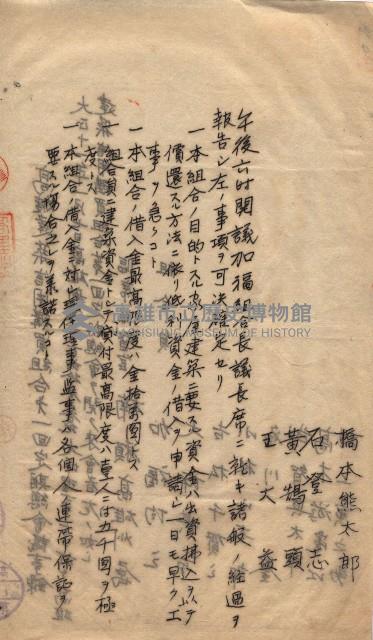 橋本熊太郎
石登志
黄鵠頭
王大益
午後六时開議加福組合長議長席ニ就キ諸般ノ経過ヲ
報告シ左ノ事項ヲ可決確定セリ
一本組合ノ目的トスル家屋建築ニ要スル資金ハ出資拂込ヲ以テ
償還スル方法ニ依リ低利資金ノ借入ヲ申請シ一日モ早ク工
事ヲ急クコト
一本組合ノ借入金最高限度ハ金拾萬圓トス
一組合員ニ建築資金トシテ貸付最高限度ハ壹人ニ付五千圓ヲ極
度トス
一本組合ノ借入金ニ対シ現任理事監事ハ各個人連帯保証ヲ
要スル場合之レヲ承諾スルコト
高雄市立歴史博物館
KAOHSIUNG MUSEUM OF HISTORY